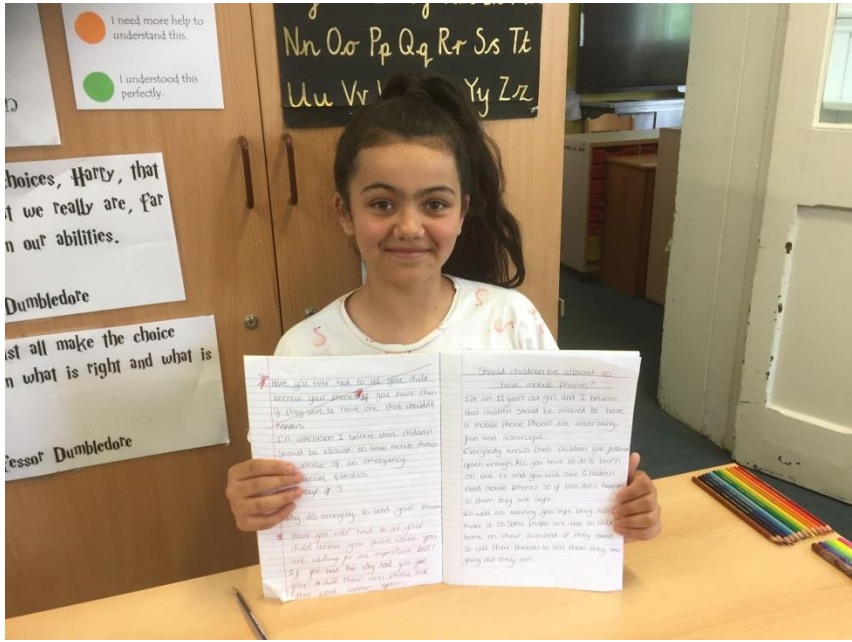 I need more help to
understand this.
I understood this
perfectly.
Nn Oo Pp Qq Rr Ss Tt
Uu Vv Yy Zz
hoices, Harry, that
t we really are, far
n our abilities.
Dumbledore
st all make the choice
n what is right and what is
fessor Dumbledore
Have you ever had to let your child
borrow your phone if you have then
if they were to have one that wouldn't
happen.
In conclusion I believe that children
should be allowed to have mobile phones
incase of an emergency
question
of 3
Why it's annoying to lend your
Have you ever had to let your
child borrow your phone when you
are waiting for an important call?
If you have this why don't you get
your their own phone and
that won't happen again.
Should children be allowed to
have mobile phones?
I'm an 11 years old girl, and I believe
that children should be allowed to have
a mobile phone. Phones are entertaing,
fun and resourceful.
Everybody knows that children get
open enough. All you have to do is turn
on the tv and you will see. Children
need mobile phones so if this does happen
to them they are safe.
So well as keeping you safe they also
make it so some people are able to walk
home on their own and if they need
to call their parents to tell them they are
going out they can.